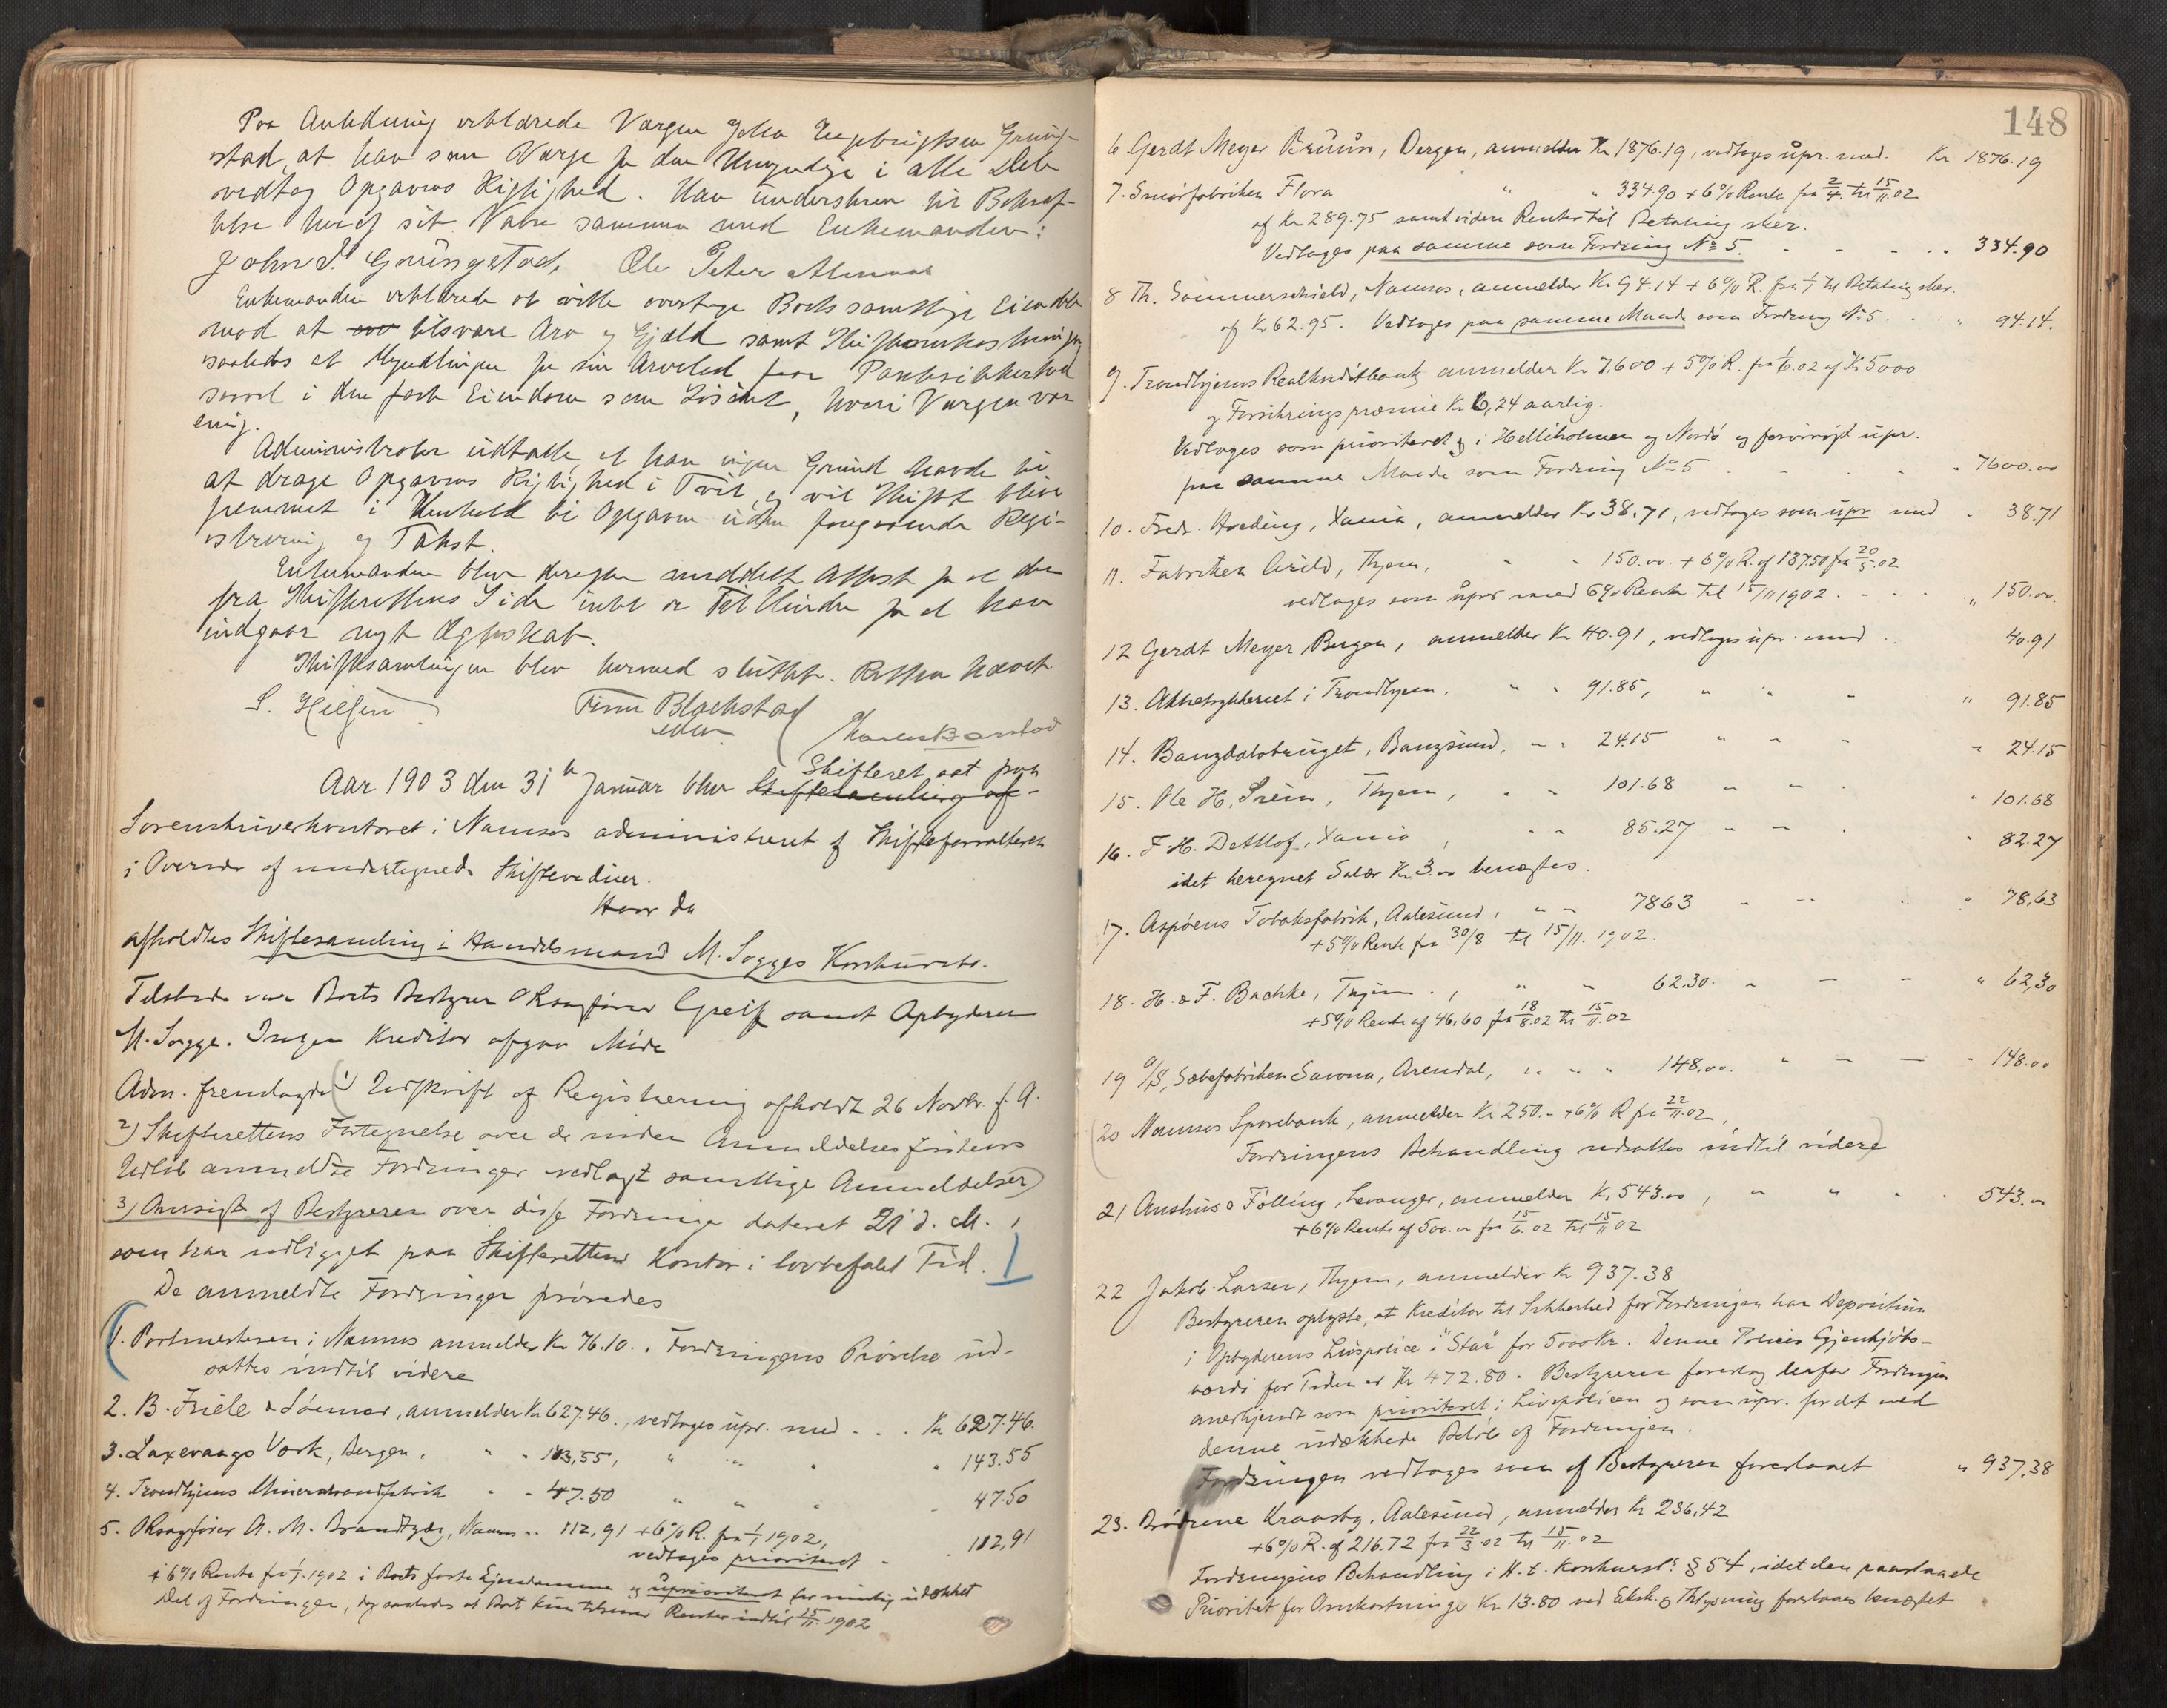 Paa Anledning erklærede Vergen John Engebrigtsen Grüng-
stad, at han som Værge for den Umyndige i alle Dele
vedtog Opgavens Rigtighed. Han underskrev til Bekræf-
telse heraf sit Navn sammen med Enkemanden:
John E. Grüngstad, Ole Peter Almaas
Enkemanden erklærede at ville overtage Boets samtlige Eiendele
mod at tilsvare Arv og Gjæld samt Skifteomkostninger
saaledes at Myndlingen for sin Arvelod faar Pantsikkerhed
saavel i den faste Eiendom som Løsøret, hvori Vergen var
enig.
Administrator udtalte, at han ingen Grund havde til
at drage Opgavens Rigtighed i Tvil, og vil Skiftet blive
fremmet i Henhold til Opgaven uden foregaaende Regi-
strering og Takst.
Enkemanden blev derefter meddelt Attest for at der
fra Skifterettens Side intet er til Hinder for at han
indgaar nyt Ægteskab.
Skiftesamlingen blev hermed sluttet. Retten hævet.
S. Nielsen Finn Blachstad
Skifteret sat paa
Aar 1903 den 31te Januar blev Skiftesamling af-
Sorenskriverkontoret i Namsos administreret af Skifteforvalteren
i Overvær af undertegnede Skiftevidner.
Hvor da
afholdtes Skiftesamling i Handelsmand M. Sogges Konkursbo.
Tilstede var Boets Bestyrer ORsagfører Greiff samt Opbyderen
M. Sogge. Ingen Kreditor afgav Møde
Adm. fremlagde 1) Udskrift af Registrering afholdt 26 Novbr. f. A.
2) Skifterettens Fortegnelse over de inden Anmeldelsesfristens
Udløb anmeldte Fordringer vedlagt samtlige Anmeldelser
3) Oversigt af Bestyreren over disse Fordringer dateret 21 d. M.,
som har udligget paa Skifterettens Kontor i lovbefalet Tid.
De anmeldte Fordringer prøvedes
1. Postmesteren i Namsos anmelder Kr. 76.10. Fordringens Prøvelse ud-
sattes indtil videre
2. B. Friele & Sønner, anmelder Kr 627.46., vedtages upr. med . . . Kr 627.46.
3. Laxevaags Værk, Bergen. " " 143,55, " " " " 143.55
4. Trondhjems Mineralvandfabrik " " 47.50 " " " 47.50
5. ORsagfører A. M. Brandtzæg, Namsos " 112,91 + 6% R. fra 1/1 1902,
vedtages prioriteret - - 112,91
+ 6% Rente fra 1/1 1902 i Boets faste Ejendomme og uprioriteret for mulig udækket
Del af Fordringen, dog saaledes at Boet kun tilsvarer Renter indtil 15/11 1902
148
6 Gerdt Meyer Bruun, Bergen, anmelder Kr 1876.19, vedtages upr. med. Kr 1876.19
7. Smørfabriken Flora " " 334.90 + 6% Rente fra 2/4. til 15/11.02
af Kr 289.75 samt videre Renter til Betaling sker.
Vedtages paa samme som Fordring No 5. - - - " 334.90
8 Th. Sommerschield, Namsos, anmelder Kr 94.14 + 6% R. fra 1/1 til Betaling sker.
af Kr 62.95. Vedtages paa samme Maade som Fordring No 5. . . " 94.14.
9. Trondhjems Realkreditbank anmelder Kr 7.600 + 5% R. fra 1/6.02 af Kr 5000
og Forsikringspræmie Kr 6,24 aarlig.
Vedtages som prioriteret i Helliholmen og Nordø og forøvrigt upr.
paa samme Maade som Fordring No 5 . . . " 7600.00
10. Fredr. Hoeding, Xania, anmelder Kr 38.71, vedtages som upr med " 38.71
11. Fabriken Arild, Thjem, " " 150.00. + 6% R. af 137.50 fra 20/5.02
vedtages som upr med 6% Rente til 15/11 1902 . . . " 150.00.
12 Gerdt Meyer, Bergen, anmelder Kr 40.91, vedtages upr. med . 40.91
13. Aktietrykkeriet i Trondhjem. " " 91.85, " " " " 91.85
14. Bangdalsbruget, Bangsund, " " 24.15 " " " " 24.15
15. Ole H. Sveen, Thjem, " " 101.68 " " . " 101.68
16. F. H. Dethlof, Xania, " " 85.27 " " . " 82.27
idet beregnet Salær Kr 3.00 benægtes.
17. Aspøens Tobaksfabrik, Aalesund, " " 78.63 " " . " 78,63
+ 5% Rente fra 30/8 til 15/11. 1902.
18. H. & F. Bachke, Thjem., " " 62.30. " " " " 62,30
+ 5% Rente af 46.60 fra 18/8.02 til 15/11.02
19 A/S, Sæbefabriken Savona, Arendal, " " " 148.00. " " " " 148.00
20 Namsos Sparebank, anmelder Kr 250.- + 6% R fra 22/11.02,
Fordringens Behandling udsattes indtil videre
21 Austhus & Følling, Levanger, anmelder Kr 543.00, " " " . 543.00
+ 6% Rente af 500.00 fra 15/6.02 til 15/11.02
22 Jakob Larsen, Thjem, anmelder Kr 937.38
Bestyreren oplyste, at Kreditor til Sikkerhed for Fordringen har Depositum
i Opbyderens Livspolice i "Star" for 5000 Kr. Denne Polices Gjenkjøbs-
værdi for Tiden er Kr 472.80. Bestyreren foreslog derfor Fordringen
anerkjendt som prioriteret i Livspolicen og som upr. for det ved
denne udækkede Beløb af Fordringen.
Fordringen vedtages som af Bestyreren foreslaaet " 937,38
23. Brødrene Kraasby, Aalesund, anmelder Kr 236,42
+ 6% R. af 216.72 fra 22/3.02 til 15/11.02
Fordringens Behandling i H. t. Konkursl's § 54, idet den paastaaede
Prioritet for Omkostninger Kr 13.80 ved Eksk. og Thlysning foreslaaes benægtet